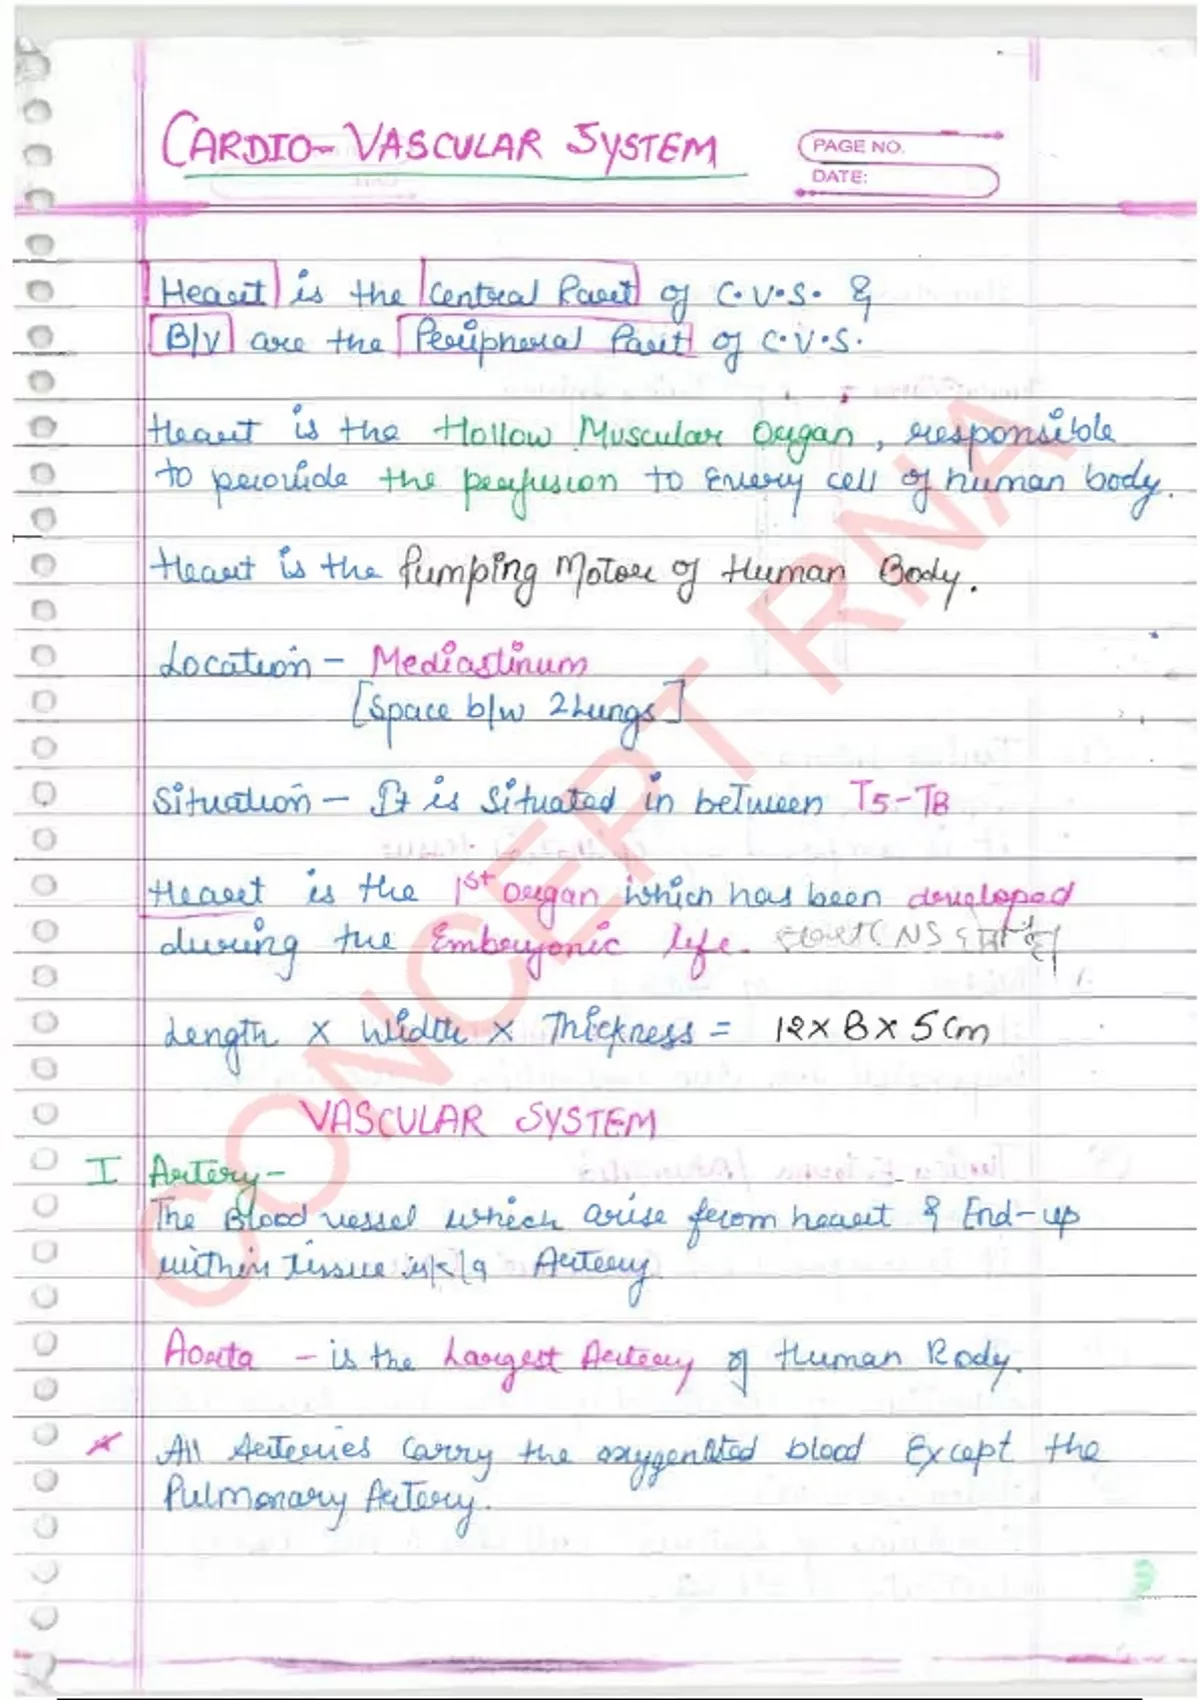 CARDIO-VASCULAR SYSTEM
PAGE NO.
DATE:
Heart is the Central Part of C.V.S. &
B/V are the Peripheral Part of C.V.S.
Heart is the Hollow Muscular Organ, responsible
to provide the perfusion to Every cell of human body.
Heart is the Pumping Motor of Human Body.
Location - Mediastinum
[Space b/w 2 Lungs]
Situation - It is Situated in between T5-T8
Heart is the 1st organ which has been developed
during the Embryonic life.
Length x Width x Thickness = 12 x 8 x 5 cm
VASCULAR SYSTEM
I Artery-
The Blood vessel which arise from heart & End-up
within tissue is k/a Artery.
Aorta - is the Largest Artery of Human Body.
* All Arteries Carry the oxygenated blood Except the
Pulmonary Artery.
3
CONCEPT RNA